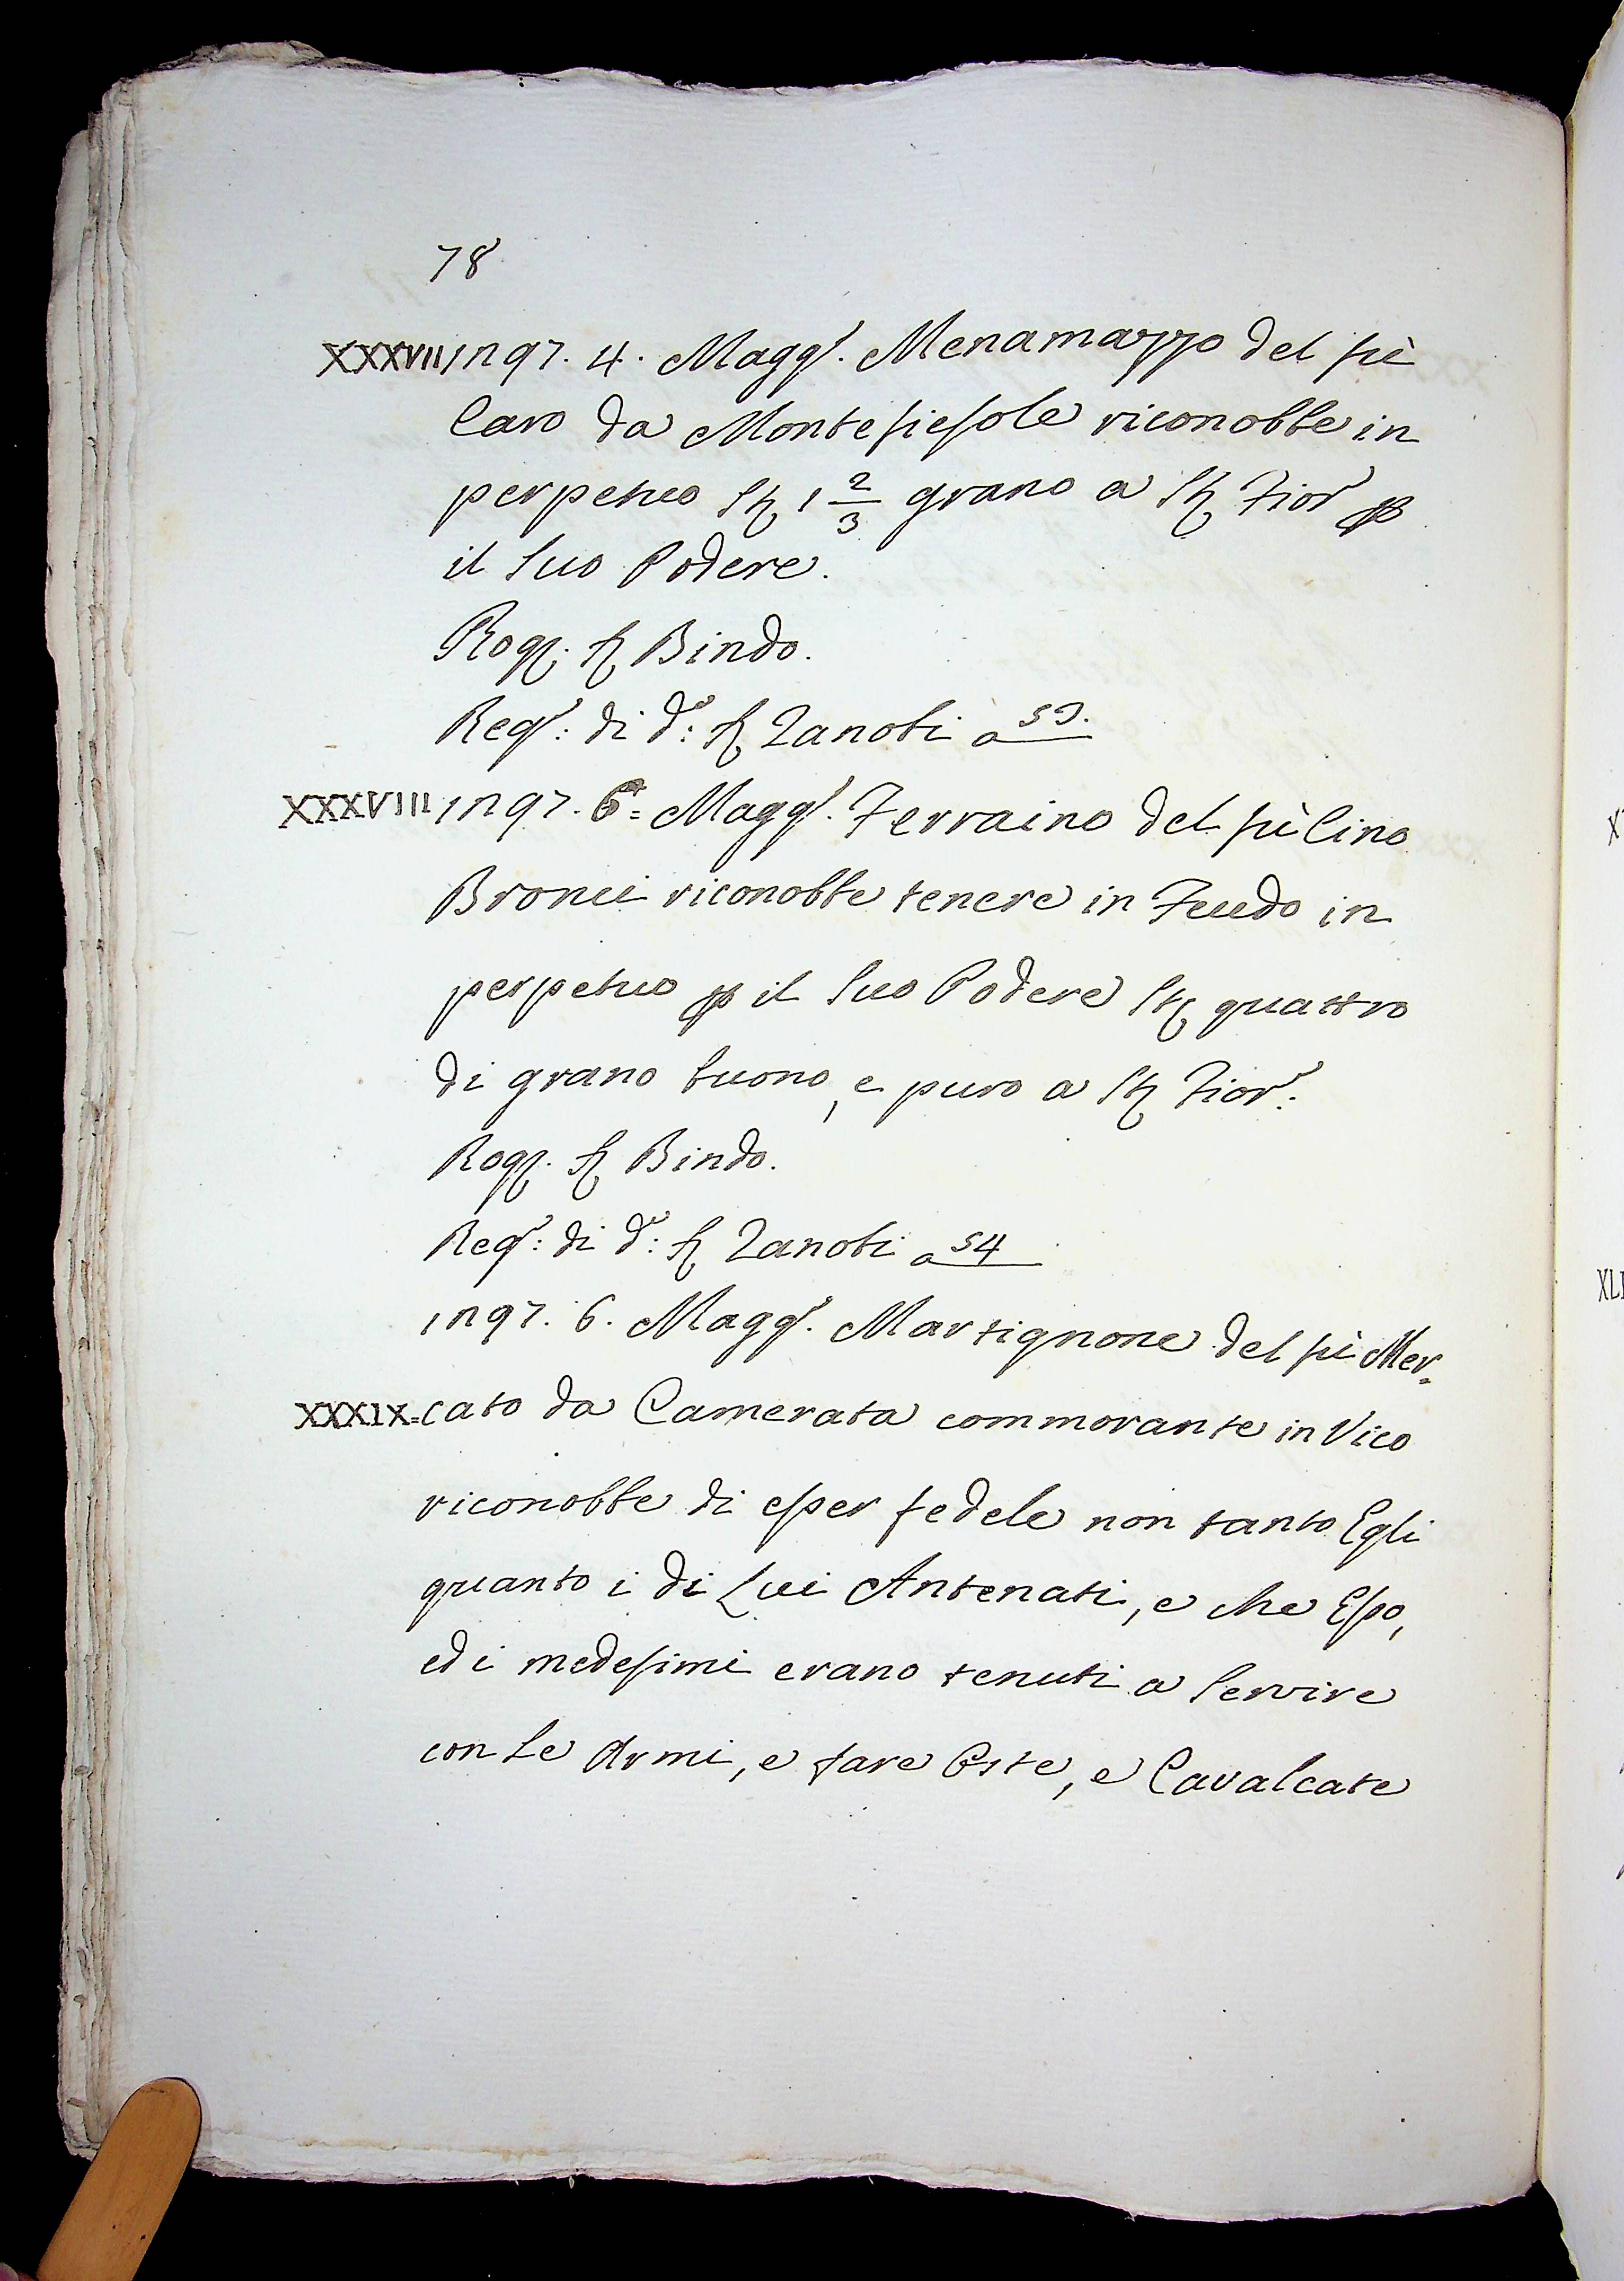 78
XXXVII 1297. 4. Magg.º Menamazzo del fù
Caro da Montefiesole riconobbe in
perpetuo St. 1 2/3 grano a St. Fior. p
il suo Podere.
Rog. S. Bindo.
Reg.º: di d.º: S. Zanobi a 53.
XXXVIII 1297. 6= Magg.º Ferraino del fù Cino
Bronci riconobbe tenere in Feudo in
perpetuo p il suo Podere St. quattro
di grano buono, e puro a St. Fior.:
Rog. S. Bindo.
Reg.º: di d.º: S. Zanobi a 54
1297. 6. Magg.º Martignone del fù Mer=
XXXIX=cato da Camerata commorante in Vico
riconobbe di esser fedele non tanto Egli
quanto i di Lui Antenati, e che Esso,
ed i medesimi erano tenuti a servire
con Le Armi, e fare Oste, e Cavalcate